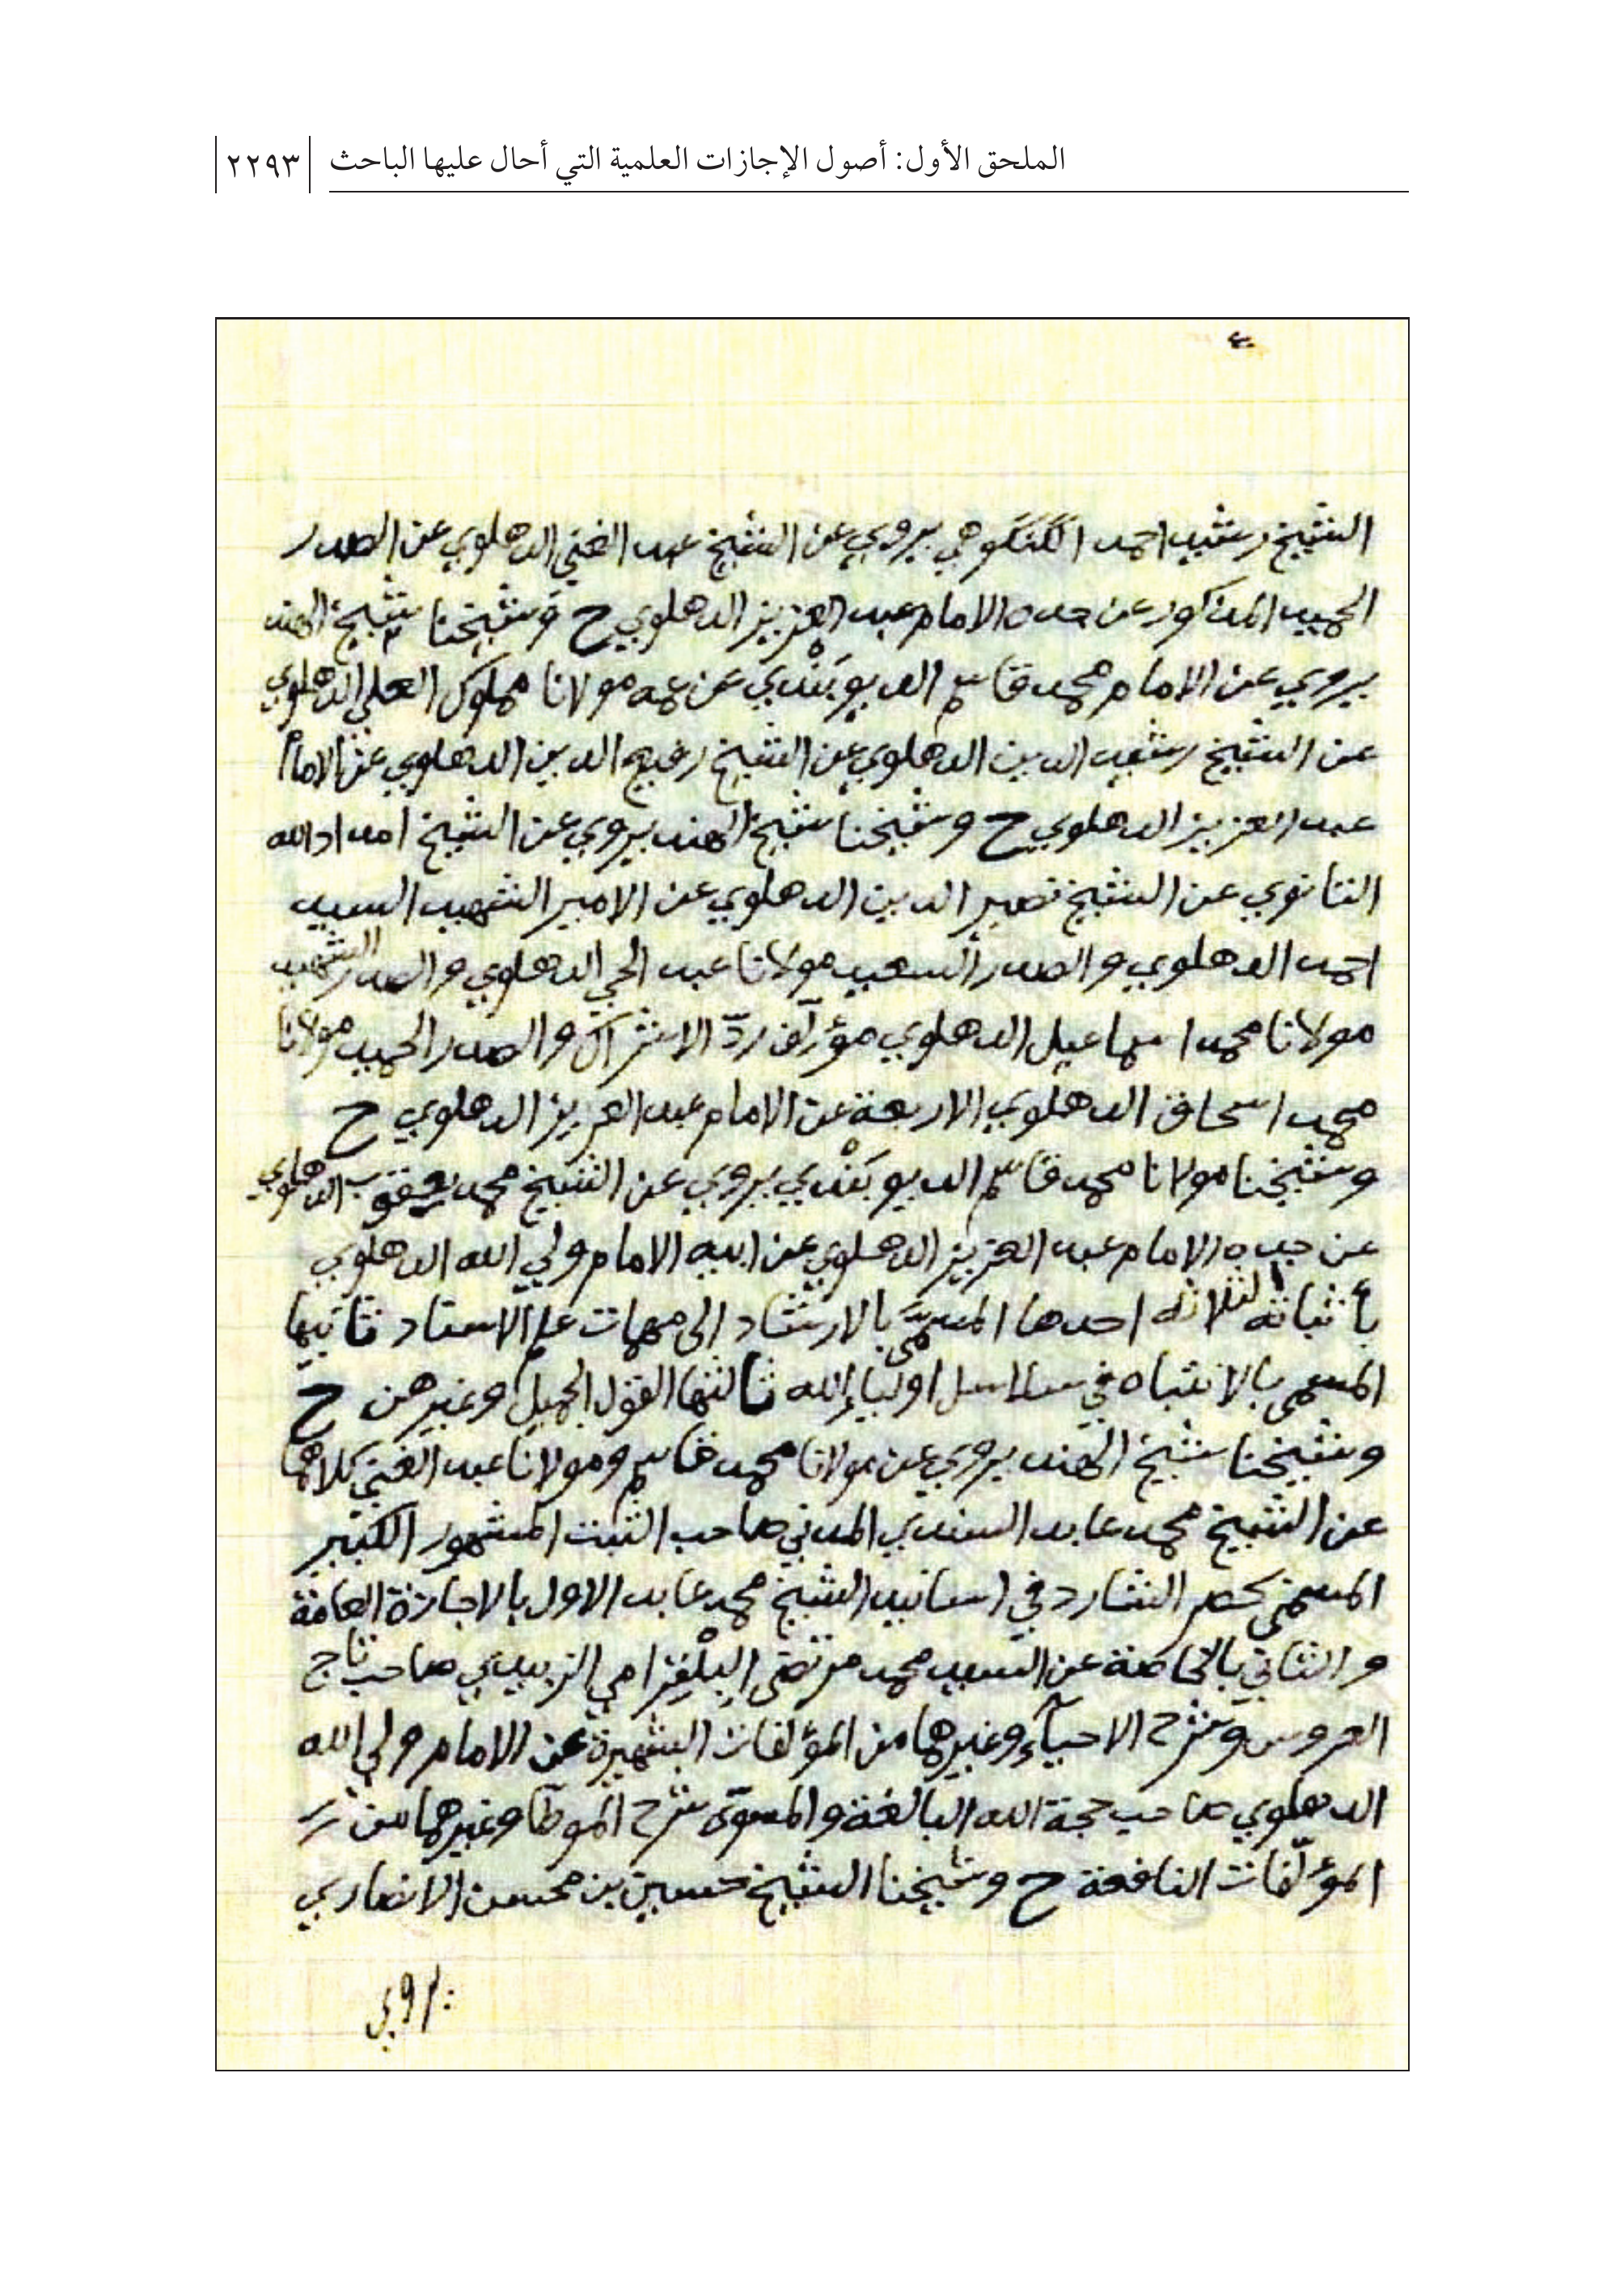 الملحق الأول: أصول الإجازات العلمية التي أحال عليها الباحث ٢٢٩٣
٤
الشيخ رشيد احمد الگنگوهي يروي عن الشيخ عبد الغني الدهلوي عن الصدر
الحميد المذكور عن جده الامام عبد العزيز الدهلوي ح وشيخنا شيخ الهند
يروي عن الامام محمد قاسم الديوبَنْدي عن عمه مولانا مملوك العلي الدهلوي
عن الشيخ رشيد الدين الدهلوي عن الشيخ رفيع الدين الدهلوي عن الامام
عبد العزيز الدهلوي ح وشيخنا شيخ الهند يروي عن الشيخ امداد الله
التانوي عن الشيخ نصير الدين الدهلوي عن الامير الشهيد السيد
احمد الدهلوي والصدر السعيد مولانا عبد الحي الدهلوي والصدر الشهيد
مولانا محمد اسماعيل الدهلوي مؤلّف ردّ الاشراك والصدر الحميد مولانا
محمد اسحاق الدهلوي الاربعة عن الامام عبد العزيز الدهلوي ح
وشيخنا مولانا محمد قاسم الديوبَنْدي يروي عن الشيخ محمد يعقوب الدهلوي
عن جده الامام عبد العزيز الدهلوي عن ابيه الامام ولي الله الدهلوي
بأثباته الثلاثة احدها المسمَّى بالارشاد الى مهمات علم الاسناد ثانيها
المسمى بالانتباه في سلاسل اولياء الله ثالثها القول الجميل وغيرهن ح
وشيخنا شيخ الهند يروي عن مولانا محمد قاسم ومولانا عبد الغني كلاهما
عن الشيخ محمد عابد السندي المدني صاحب الثبت المشهور الكبير
المسمى بحصر الشارد في اسانيد الشيخ محمد عابد الاول بالاجازة العامة
والثاني بالخاصة عن السيد محمد مرتضى البلْغرامي الزبيدي صاحب تاج
العروس وشرح الاحياء وغيرهما من المؤلفات الشهيرة عن الامام ولي الله
الدهلوي صاحب حجة الله البالغة والمسوّى شرح الموطأ وغيرهما من
المؤلّفات النافعة ح وشيخنا الشيخ حسين بن محسن الانصاري
يروي